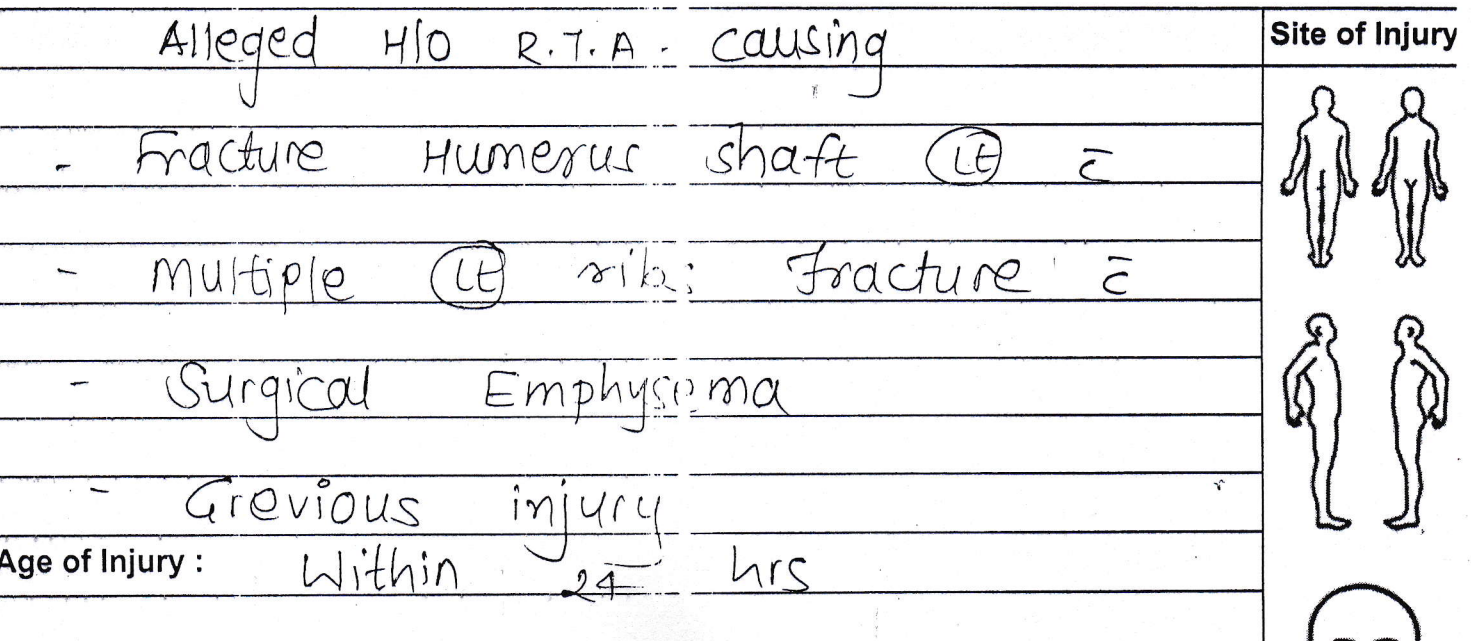 Alleged H/O R.T.A. causing
Site of Injury
- Fracture Humerus shaft Lt c̄
- Multiple Lt ribs Fracture c̄
- Surgical Emphysema
- Grevious injury
Age of Injury : Within 24 hrs